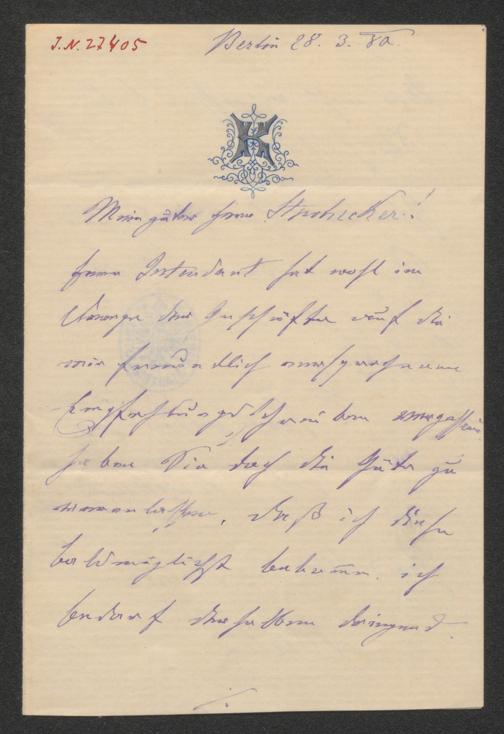 J.N. 27405
Berlin 28. 3. 80.
K
Mein guter Herr Strohecker!
Herr Intendant hat wohl im
Drange der Geschäfte auf die
mir freundlich versprochene
Empfehlungsschreiben vergessen
haben Sie doch die Güte zu
veranlassen, daß ich diese
baldmöglichst bekomme. ich
bedarf dieselben dringend.